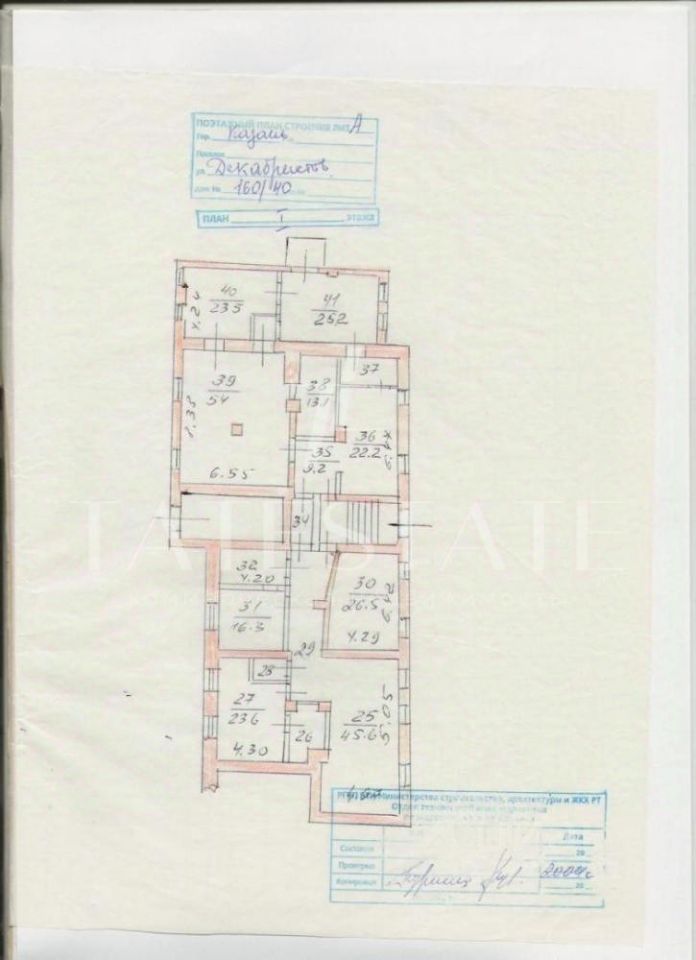 ПОЭТАЖНЫЙ ПЛАН СТРОЕНИЯ ЛИТ. А
Гор. Казань
ул. Декабристов
дом № 160/40
ПЛАН I ЭТАЖА
40
23.5
41
25.2
37
39
54
8.38
6.55
38
13.1
36
22.2
35
9.2
34
TATESTATE
32
4.20
31
16.3
30
26.5
4.29
29
28
27
23.6
4.30
26
25
45.6
5.05
Министерства строительства, архитектуры и ЖКХ РТ
Дата
Составил
20
Проверил
Копировал
20